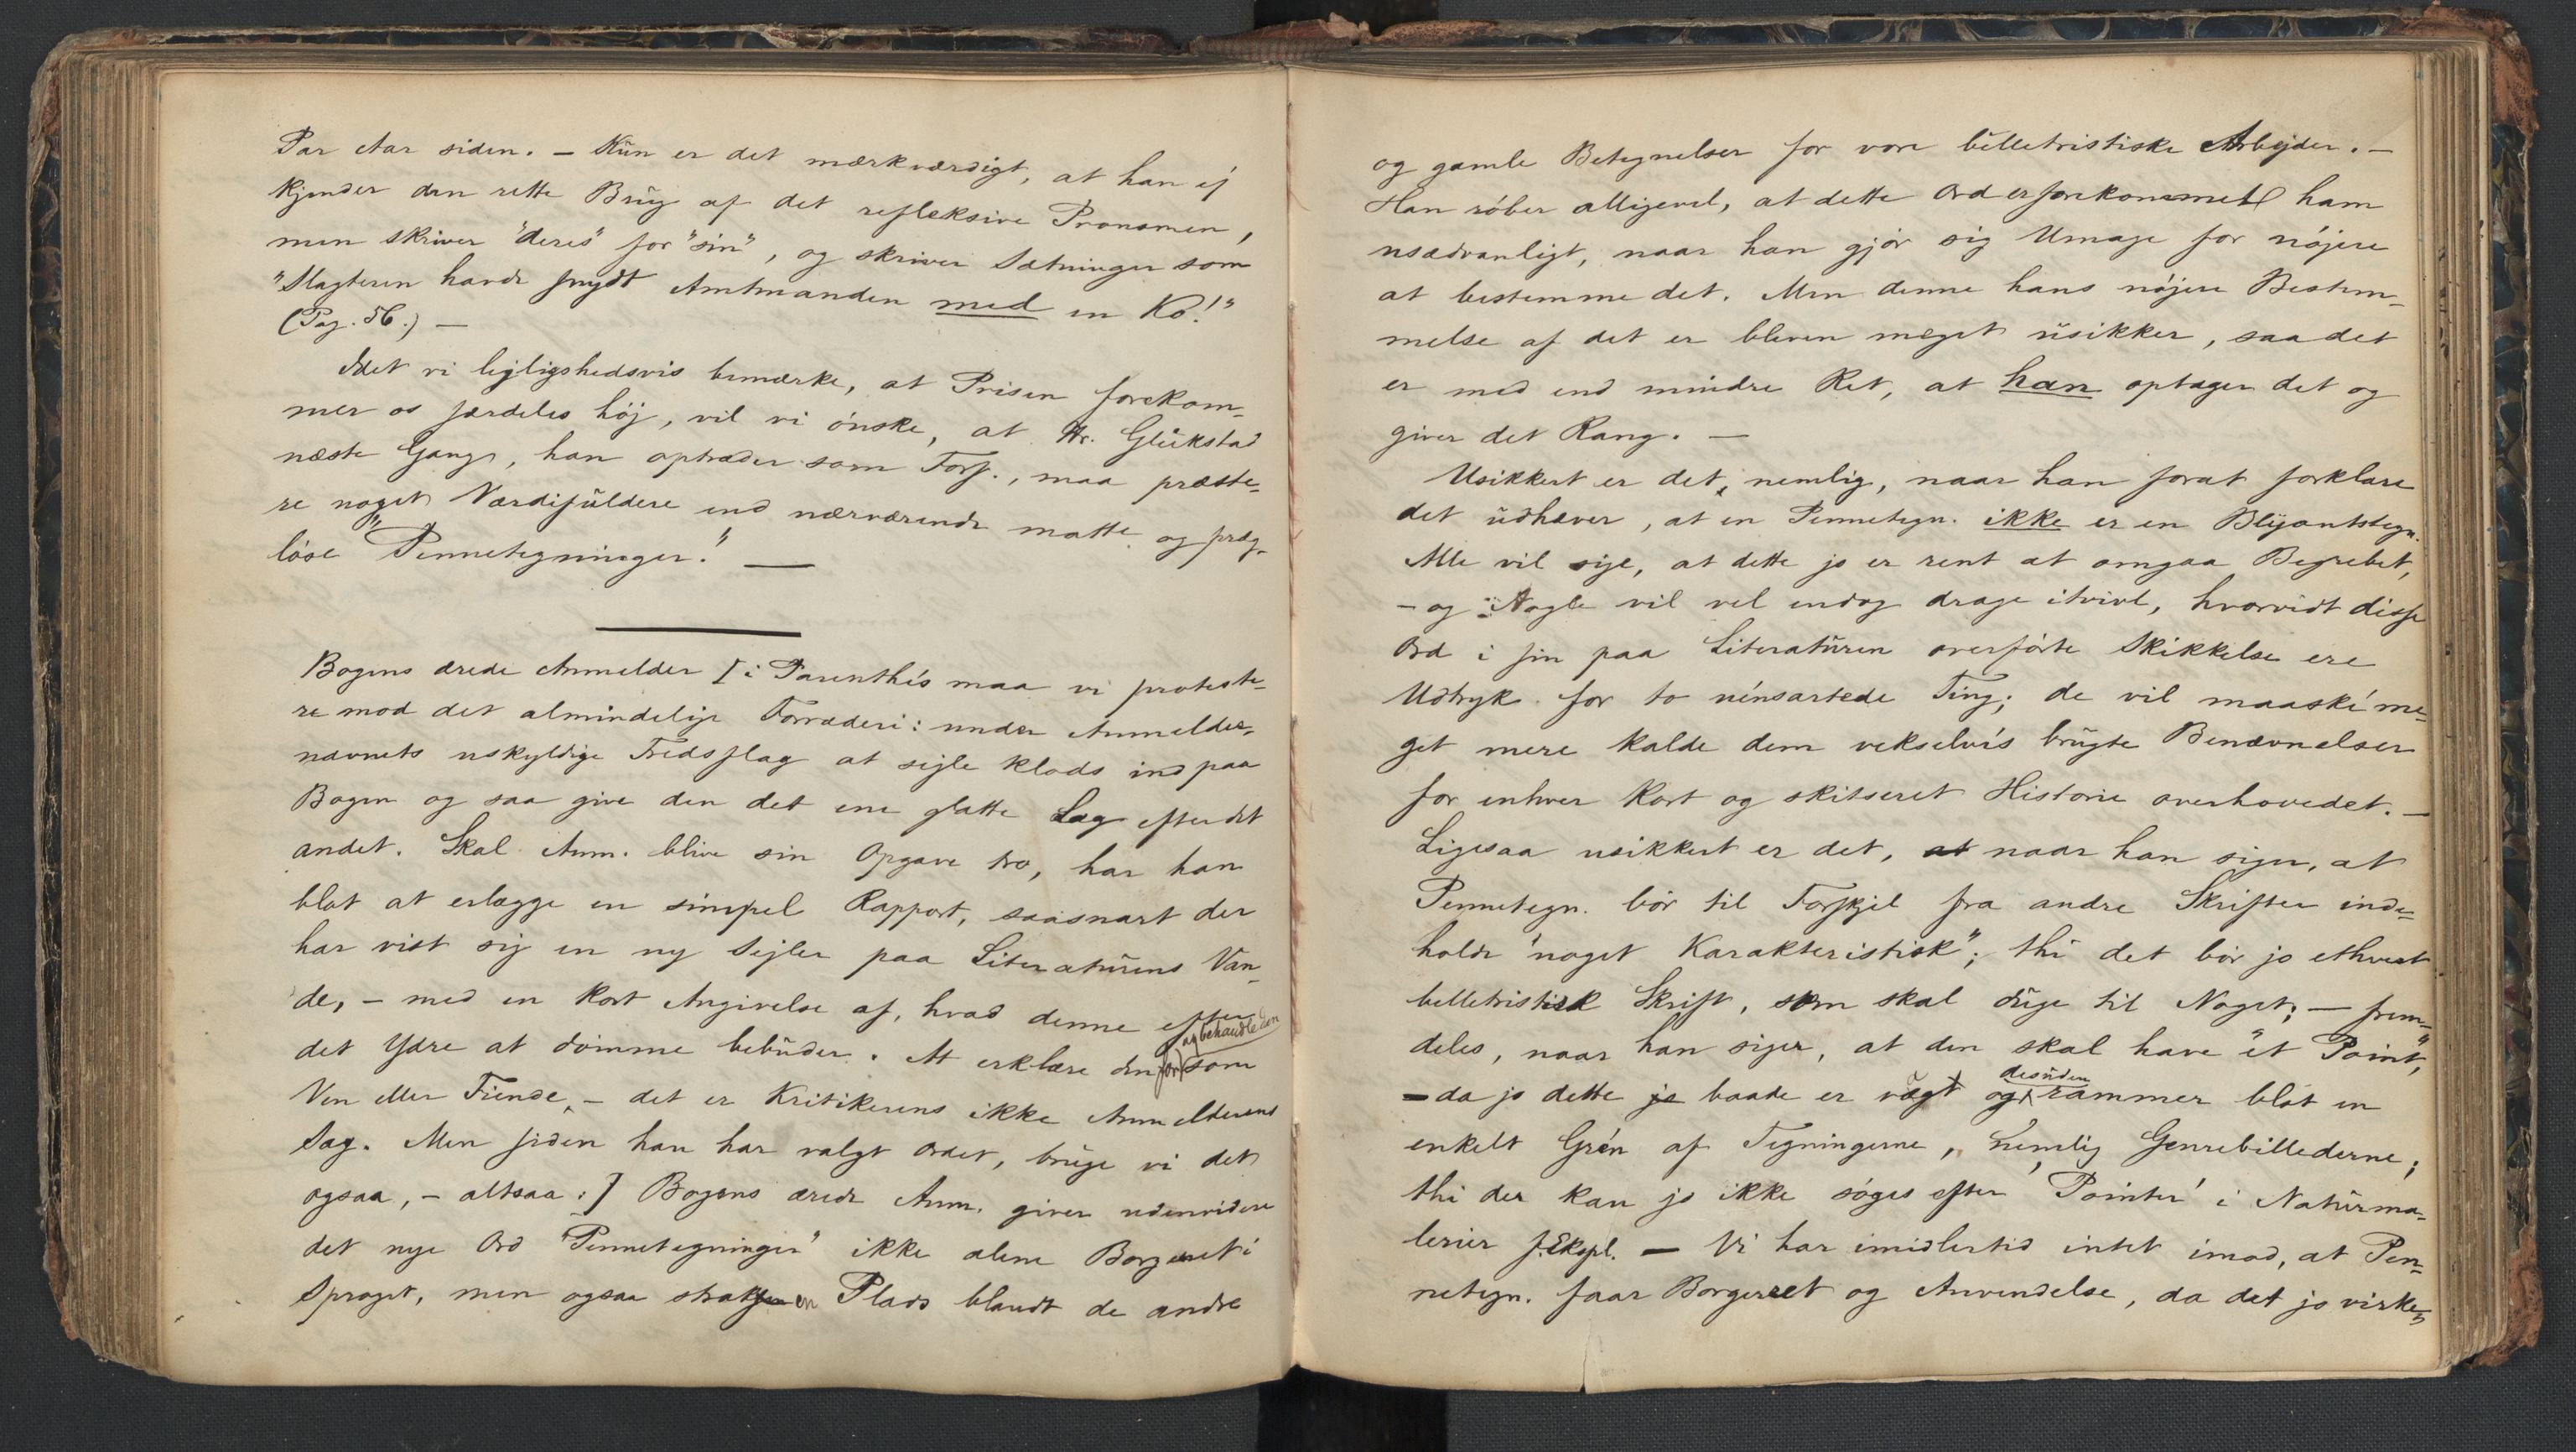 Par Aar siden. – Kun er det mærkværdigt, at han ej
kjender den rette Brug af det refleksive Pronomen,
men skriver "deres" for "sin", og skriver Sætninger som
"Slagteren havde snydt Amtmanden med en Ko!"
(Pag. 56.) –
Idet vi lejlighedsvis bemærke, at Prisen forekom-
mer os særdeles höj, vil vi önske, at Hr. Glükstad
næste Gang, han optræder som Forf., maa præste-
re noget Værdifuldere end nærværende matte og præg-
löse "Pennetegninger." —
Bogens ærede Anmelder [i Parenthes maa vi proteste-
re mod det almindelige Forræderi: under Anmelder-
navnets uskyldige Fredsflag at sejle klods ind paa
Bogen og saa give den det ene glatte Lag efter det
andet. Skal Anm. blive sin Opgave tro, har han
blot at erlægge en simpel Rapport, saasnart der
har vist sig en ny Sejler paa Literaturens Van-
de, – med en kort Angivelse af, hvad denne efter
det Ydre at dömme bebuder. At erklære den for og behandle den som
Ven eller Fiende, – det er Kritikerens ikke Anmelderens
Sag. Men siden han har valgt Ordet, bruge vi det
ogsaa, – altsaa:] Bogens ærede Anm. giver udenvidere
det nye Ord "Pennetegninger" ikke alene Borgerret i
Sproget, men ogsaa strax en Plads blandt de andre
og gamle Betegnelser for vore belletristiske Arbejder. –
Han röber alligevel, at dette Ord er forekommet ham
usædvanligt, naar han gjör sig Umage for nöjere
at bestemme det. Men denne hans nöjere Bestem-
melse af det er bleven meget usikker, saa det
er med end mindre Ret, at han optager det og
giver det Rang. —
Usikkert er det, nemlig, naar han forat forklare
det udhæver, at en Pennetegn. ikke er en Blyantstegn.
Alle vil sige, at dette jo er rent at omgaa Begrebet,
– og Nogle vil vel endog drage itvivl, hvorvidt disse
Ord i sin paa Literaturen overförte Skikkelse ere
Udtryk for to uénsartede Ting; de vil maaské me-
get mere kalde dem vekselvis brugte Benævnelser
for enhver kort og skitseret Historie overhovedet. –
Ligesaa usikkert er det, at naar han siger, at
Pennetegn. bör til Forskjel fra andre Skrifter inde-
holde "noget Karakteristisk"; thi det bör jo ethvert
belletristisk Skrift, som skal duge til Noget; – frem-
deles, naar han siger, at den skal have "et Point",
– da jo dette jo baade er vagt og desuden rammer blot en
enkelt Grén af Tegningerne, nemlig Genrebillederne;
thi der kan jo ikke söges efter 'Pointer' i Naturma-
lerier f.Ekspl. — Vi har imidlertid intet imod, at Pen-
netegn. faar Borgerret og Anvendelse, da det jo virke-